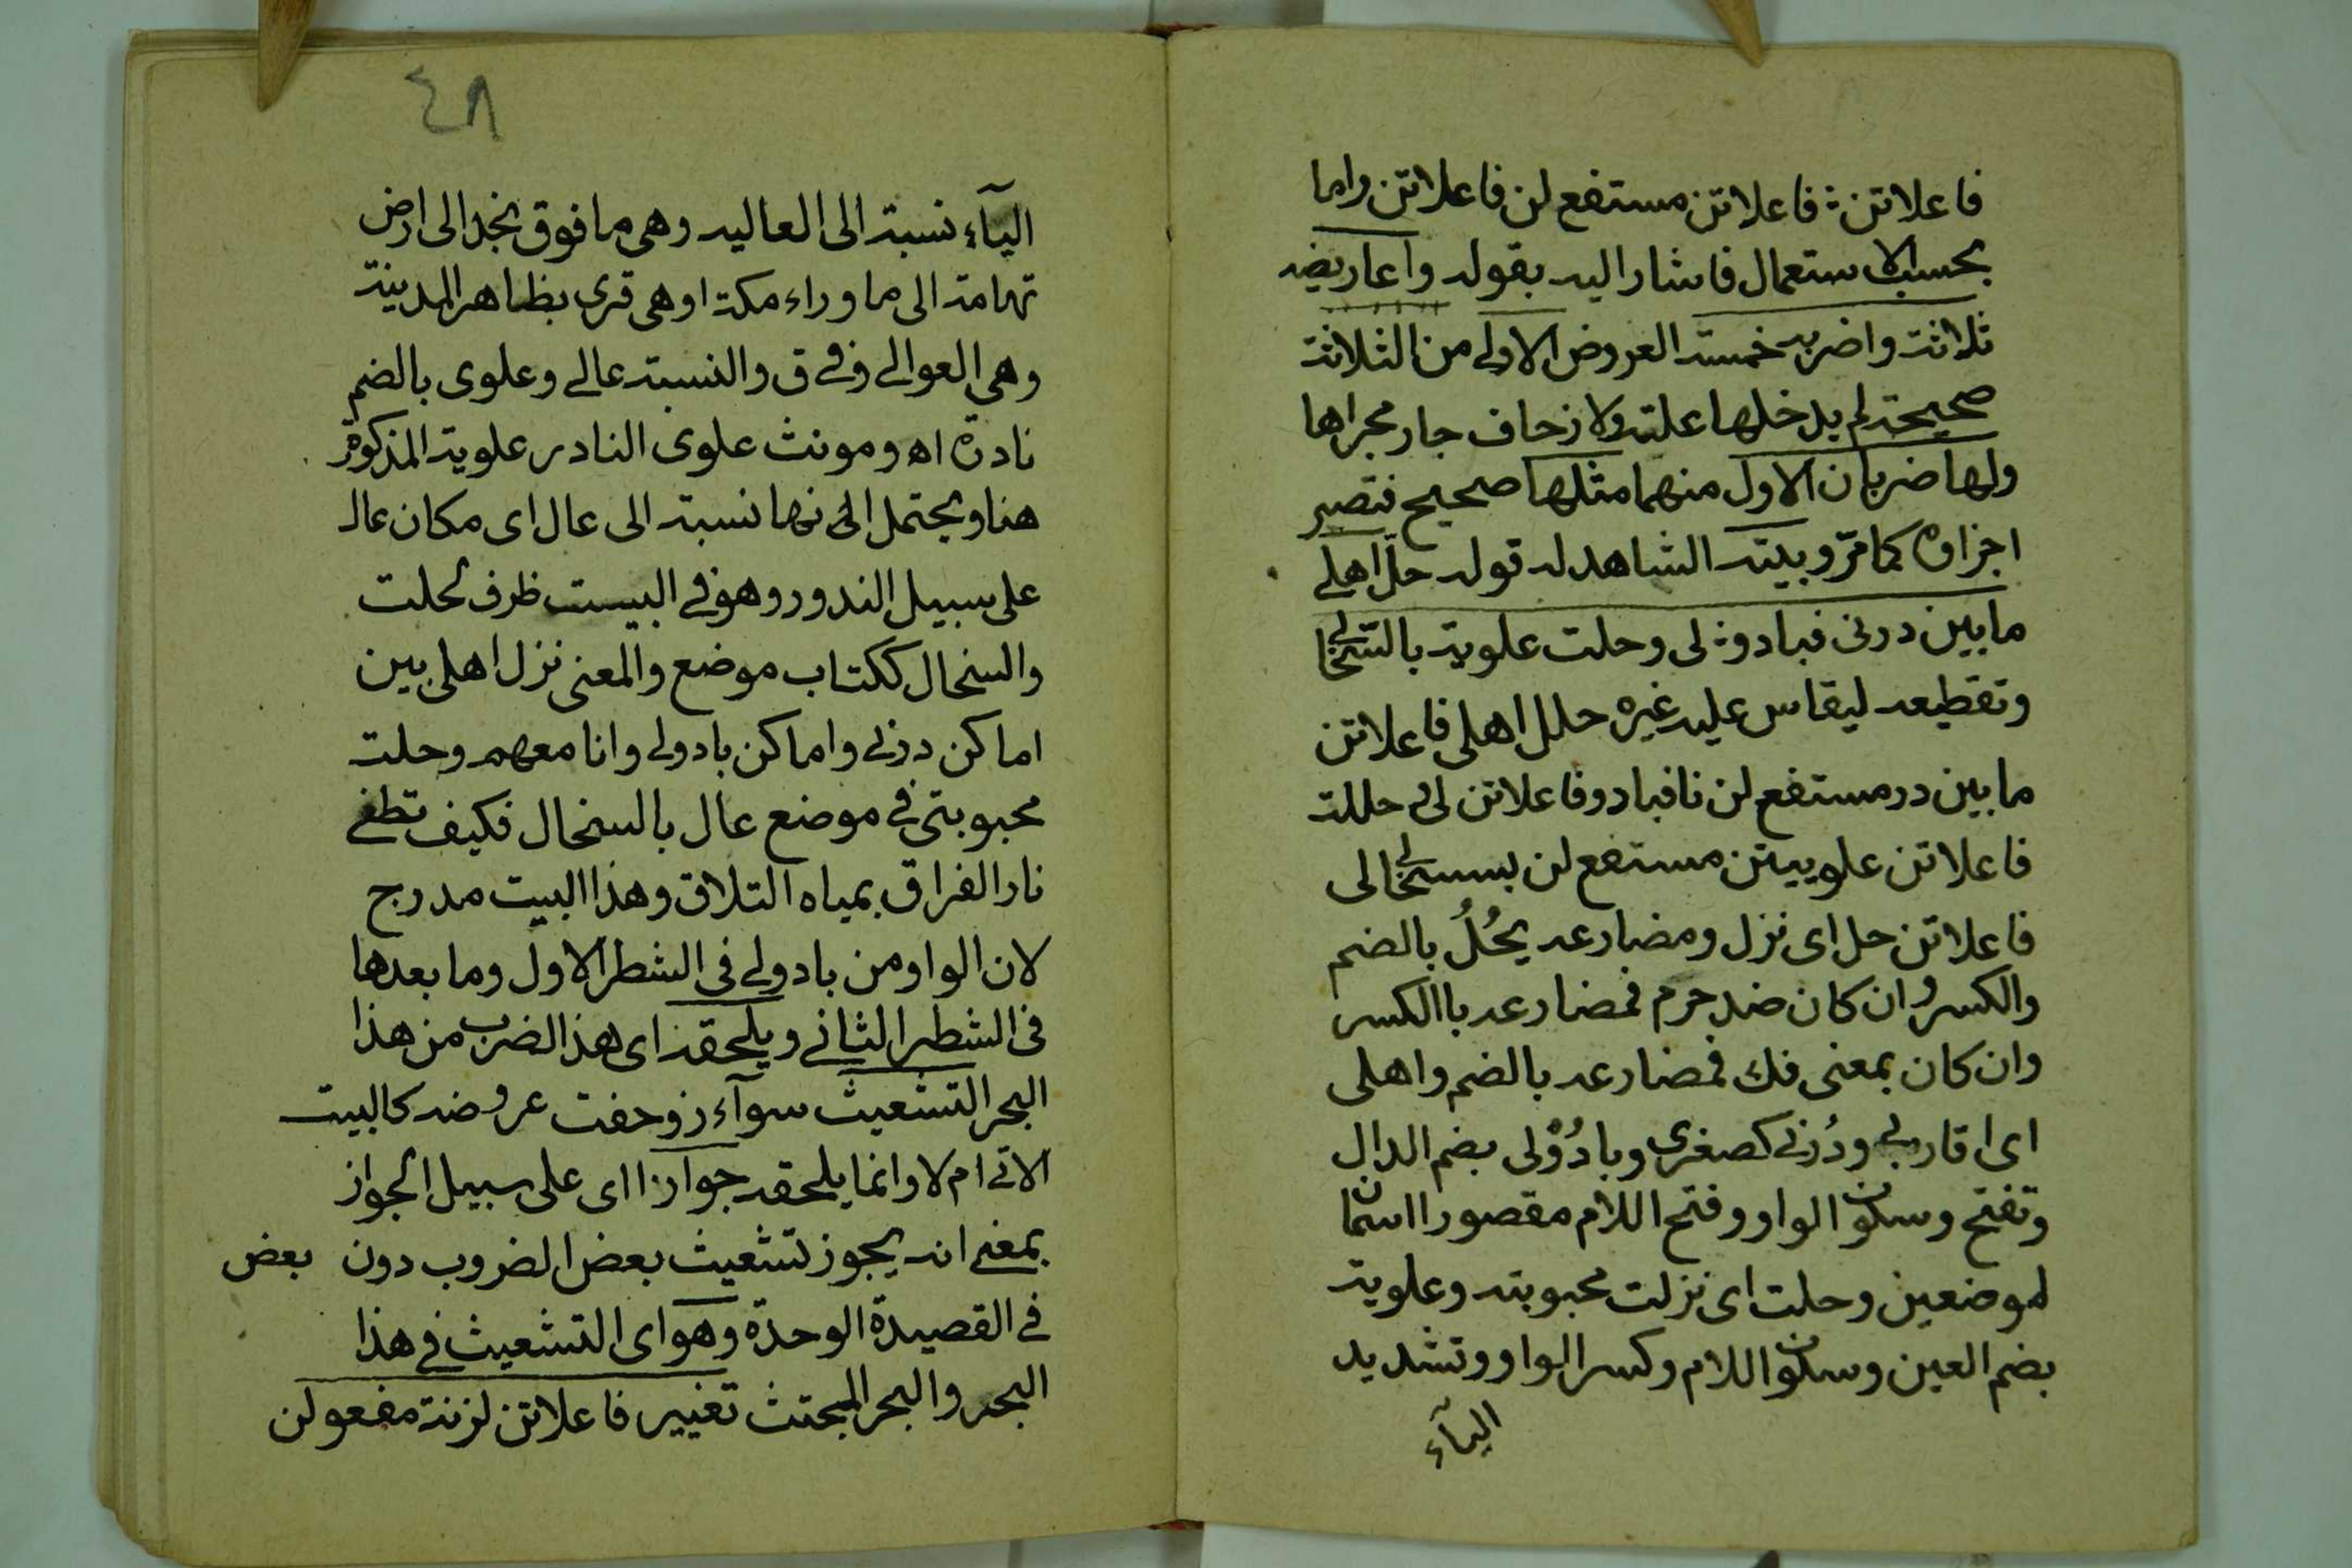 فاعلاتن ؛ فاعلاتن مستفع لن فاعلاتن واما
بحسب الاستعمال فاشار اليه بقوله واعاريضه
ثلاثة واضربه خمسة العروض الاولى من الثلاثة
صحيحة لم يدخلها علته ولا زحاف جار مجراها
ولها ضربان الاول منهما مثلها صحيح فتصير
اجزاوه كما مرّ وبيته الشاهد له قوله حلّ اهلي
ما بين درنى فبادو ؛ لى وحلت علوية بالسّخالي
وتقطيعه ليقاس عليه غيره حلل اهلي فاعلاتن
ما بين در مستفع لن نا فبادو فاعلاتن لى حللت
فاعلاتن علوييتن مستفع لن بسسخالى
فاعلاتن حل اى نزل ومضارعه يحُلُ بالضم
والكسر وان كان ضد حرم فمضارعه باالكسر
وان كان بمعنى فك فمضارعه بالضم واهلى
اى اقاربي ودُرنى كصغرى وبادُوْلى بضم الدال
وتفتح وسكون الواو وفتح اللام مقصورا اسمان
لموضعين وحلت اى نزلت محبوبته وعلوية
بضم العين وسكون اللام وكسر الواو وتشديد
اليآء
٤٨
اليآء نسبة الى العاليه وهى ما فوق نجد الى ارض
تهامة الى ما وراء مكة او هى قرى بظاهر المدينة
وهى العوالى وفى ق والنسبة عالى وعلوى بالضم
نادرة اه ومونث علوى النادر علوية المذكورة
هنا ويحتمل انها نسبة الى عال اى مكان عال
على سبيل الندور وهو فى البيت ظرف لحلت
والسخال ككتاب موضع والمعنى نزل اهلى بين
اماكن درنى واماكن بادولى وانا معهم وحلت
محبوبتى فى موضع عال بالسخال فكيف تطفى
نار الفراق بمياه التلاق وهذا البيت مدرج
لان الواو من بادولى فى الشطر الاول وما بعدها
فى الشطر الثانى ويلحقه اى هذ الضرب من هذا
البحر التشعيث سوآء زوحفت عروضه كالبيت
الاتى ام لا وانما يلحقه جوازا اى على سبيل الجواز
بمعنى انه يجوز تشعيث بعض الضروب دون بعض
فى القصيدة الوحدة وهو اى التشعيث فى هذا
البحر والبحر المجتث تغيير فاعلاتن لزنة مفعولن